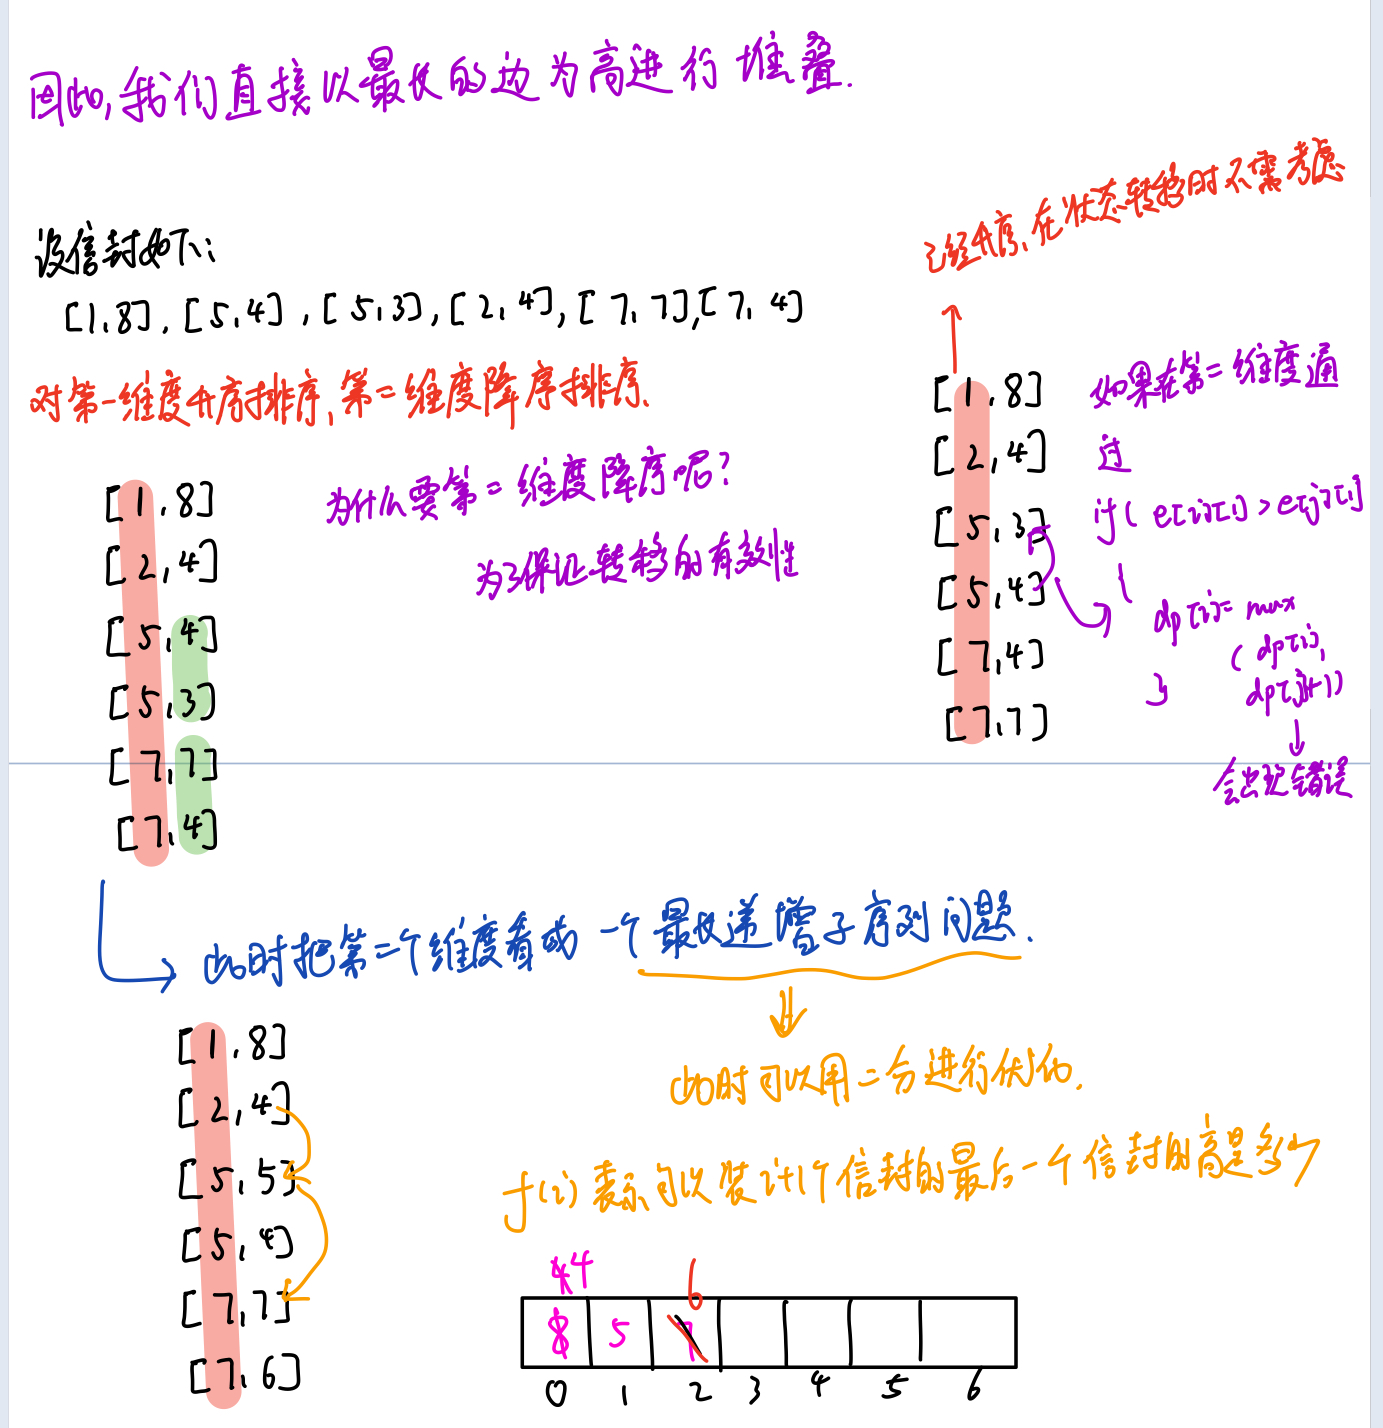 因此,我们直接以最长的边为高进行堆叠.
设信封如下:
[1,8], [5,4], [5,3], [2,4], [7,7], [7,4]
对第一维度升序排序,第二维度降序排序.
[1,8]
[2,4]
[5,4]
[5,3]
[7,7]
[7,4]
为什么要第二维度降序呢?
为了保证转移的有效性
已经升序,在状态转移时不需考虑
[1,8]
[2,4]
[5,3]
[5,4]
[7,4]
[7,7]
如果在第二维度通
过
if( e[i][1] > e[j][1]
{
dp[i]= max
( dp[i],
dp[j]+1)
}
会出现错误
此时把第二个维度看成一个最长递增子序列问题.
[1,8]
[2,4]
[5,5]
[5,4]
[7,7]
[7,6]
此时可以用二分进行优化.
f(i) 表示可以装i+1个信封的最后一个信封的高是多少
4 4 6
8 5 7
0 1 2 3 4 5 6